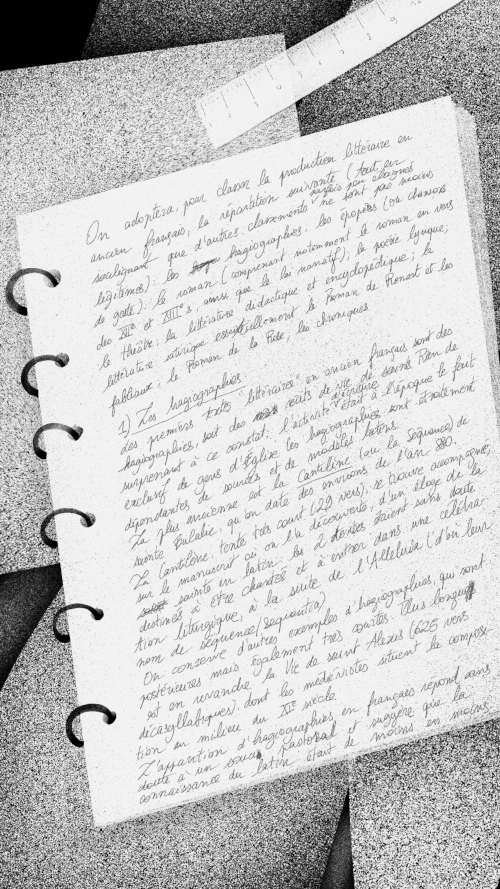 On adoptera, pour classer la production littéraire en
ancien français, la répartition suivante (tout en
soulignant que d'autres classements ne sont pas moins
légitimes) : les hagiographies ; les épopées (ou chansons
de geste) ; le roman (comprenant notamment le roman en vers
des XIIe et XIIIe s., ainsi que le lai narratif) ; la poésie lyrique ;
le théâtre ; la littérature didactique et encyclopédique ; la
littérature satirique essentiellement le Roman de Renart et les
fabliaux ; le Roman de la Rose ; les chroniques.
1) Les hagiographies
Les premiers textes "littéraires" en ancien français sont des
hagiographies, soit des récits de vie de saints. Rien de
surprenant à ce constat : l'activité d'écriture était à l'époque le fait
exclusif de gens d'Église (les hagiographies sont étroitement
dépendantes de sources et de modèles latins.
La plus ancienne est la Cantilène (ou la Séquence) de
sainte Eulalie, qu'on date des environs de l'an 880.
La Cantilène, texte très court (29 vers), se trouve accompagné,
sur le manuscrit où on l'a découverte, d'un éloge de la
sainte en latin. Les 2 étaient sans doute
destinés à être chantés et à entrer dans une célébra-
tion liturgique, à la suite de l'Alleluia (d'où leur
nom de séquence/sequentia)
On conserve d'autres exemples d'hagiographies, qui sont
postérieures mais également très courtes. Plus longue
est en revanche la Vie de saint Alexis (625 vers
décasyllabiques), dont les médiévistes situent la composi-
tion au milieu du XIe siècle.
L'apparition d'hagiographies en français répond sans
doute à un souci pastoral et suggère que la
connaissance du latin était de moins en moins